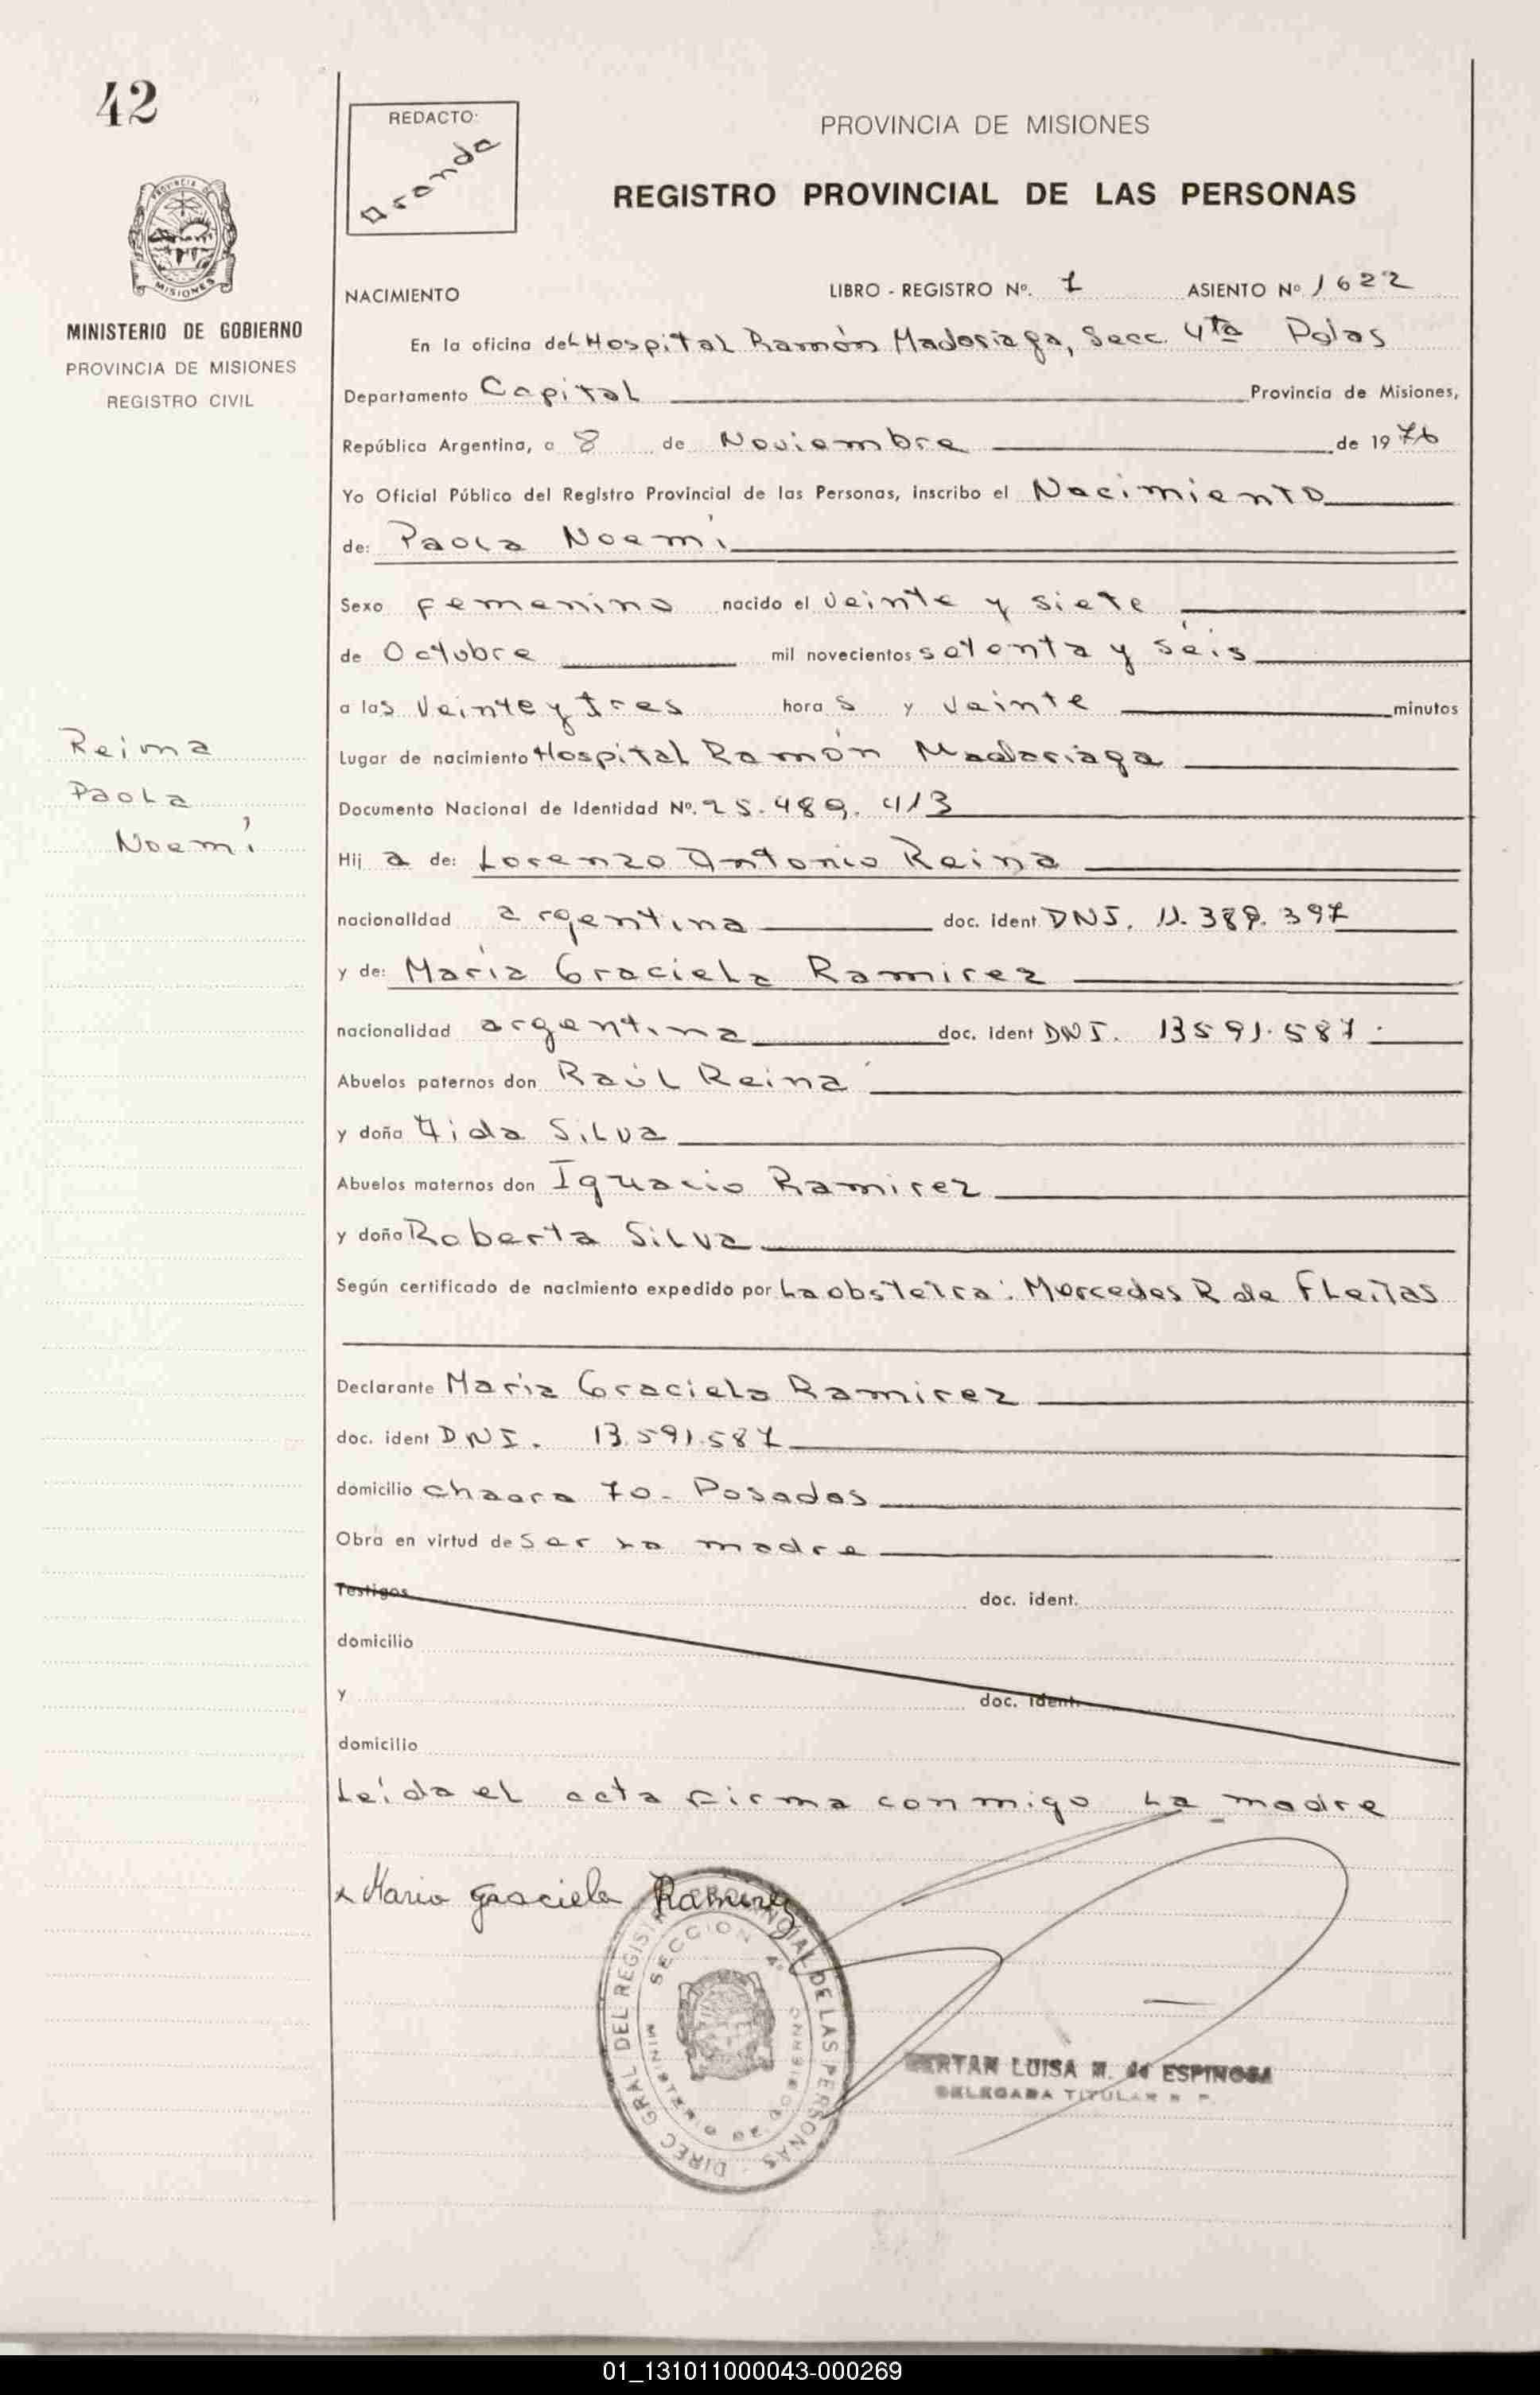 42
REDACTO:
Aranda
PROVINCIA DE MISIONES
REGISTRO PROVINCIAL DE LAS PERSONAS
MINISTERIO DE GOBIERNO
PROVINCIA DE MISIONES
REGISTRO CIVIL
NACIMIENTO LIBRO - REGISTRO Nº. 1 ASIENTO Nº 1622
En la oficina del Hospital Ramón Madariaga, Secc. 4ta Pdas
Departamento Capital Provincia de Misiones,
República Argentina, a 8 de Noviembre de 1976
Yo Oficial Público del Registro Provincial de las Personas, inscribo el Nacimiento
de: Paola Noemí
Sexo femenino nacido el veinte y siete
de Octubre mil novecientos setenta y séis
a las veinte y tres horas y veinte minutos
Lugar de nacimiento Hospital Ramón Madariaga
Documento Nacional de Identidad Nº. 25.489.413
Hija de: Lorenzo Antonio Reina
nacionalidad argentina doc. ident DNI. 11.389.397
y de: María Graciela Ramirez
nacionalidad argentina doc. ident DNI. 13591.587.
Abuelos paternos don Raúl Reina
y doña Aida Silva
Abuelos maternos don Ignacio Ramirez
y doña Roberta Silva
Según certificado de nacimiento expedido por La obstetra: Mercedes R de Fleitas
Declarante Maria Graciela Ramirez
doc. ident DNI. 13.591.587
domicilio chacra 70- Posadas
Obra en virtud de Ser la madre
Testigos doc. ident.
domicilio
y doc. ident.
domicilio
Leída el acta firma conmigo la madre
Reina
Paola
Noemí
x Maria Graciela Ramirez
DIREC GRAL DEL REGIS PROVINCIAL DE LAS PERSONAS
SECCION 4ª
MINISTERIO DE GOBIERNO
LUISA M. de ESPINOSA
DELEGADA TITULAR R P.
01_131011000043-000269